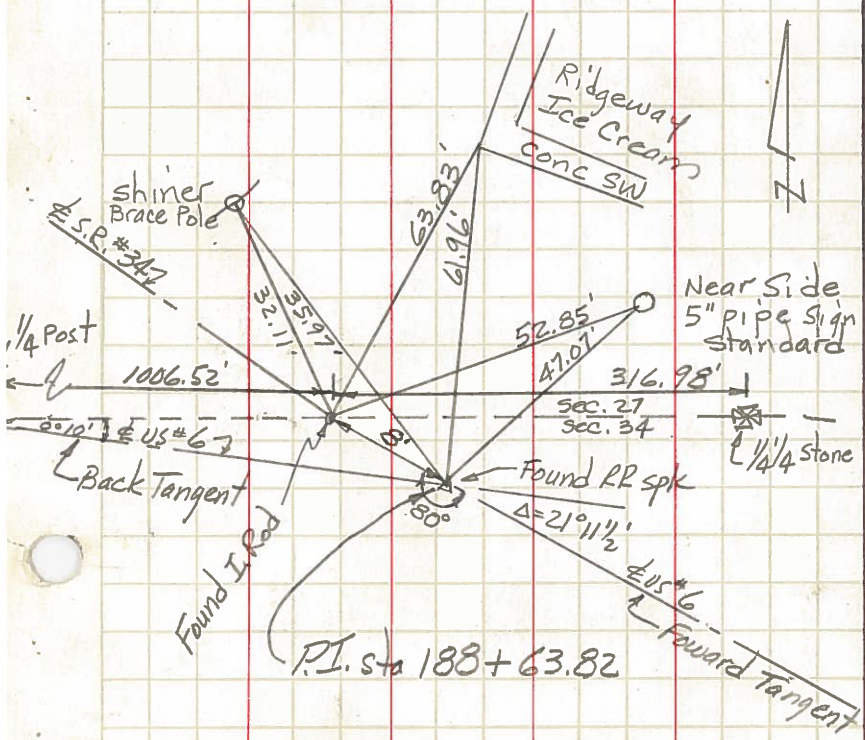 Ridgeway
Ice Cream
conc SW
N
shiner
Brace Pole
℄ S.R. #347
63.83'
61.96'
32.11'
35.97'
Near Side
5" pipe Sign
Standard
52.85'
47.07'
1/4 Post
1006.52'
316.98'
sec. 27
sec. 34
1/4 1/4 Stone
0°10'
℄ US #6
8'
Back Tangent
Found RR spk
180°
Δ=21°11½'
℄ US #6
Foward Tangent
Found I. Rod
P.I. sta 188+63.82